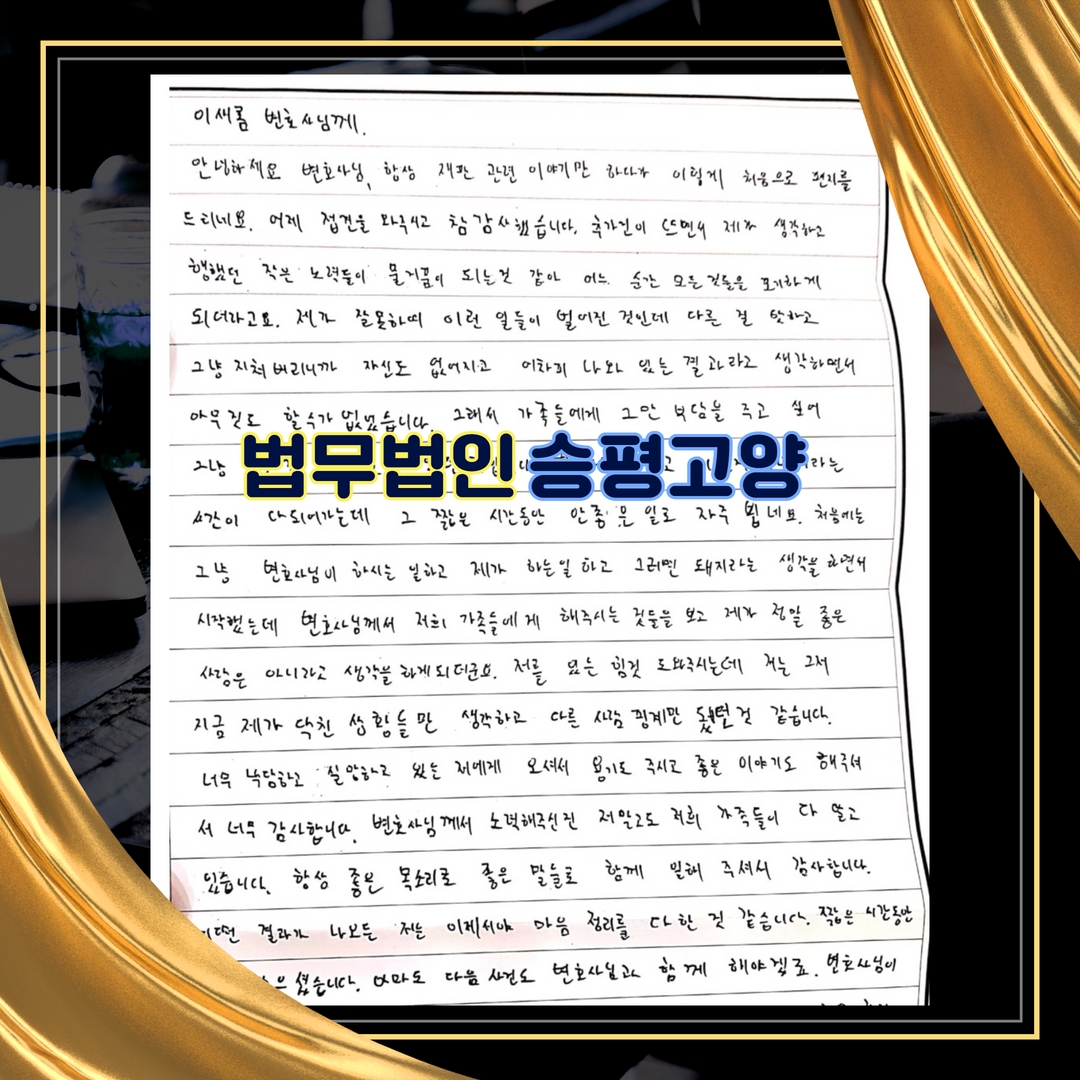 이새롬 변호사님께.
안녕하세요 변호사님, 항상 재판 관련 이야기만 하다가 이렇게 처음으로 편지를
드리네요. 어제 접견을 와주시고 참 감사했습니다. 추가건이 뜨면서 제가 생각하고
행했던 작은 노력들이 물거품이 되는것 같아 어느 순간 모든것들을 포기하게
되더라고요. 제가 잘못하여 이런 일들이 벌어진 것인데 다른 걸 탓하고
그냥 지쳐버리니까 자신도 없어지고 어차피 나와 있는 결과라고 생각하면서
아무것도 할수가 없었습니다. 그래서 가족들에게 그만 부담을 주고 싶어
그냥
법무법인 승평고양
시간이 다되어가는데 그 짧은 시간동안 안좋은 일로 자주 뵙네요. 처음에는
그냥 변호사님이 하시는 일하고 제가 하는일 하고 그러면 돼지라는 생각을 하면서
시작했는데 변호사님께서 저희 가족들에게 해주시는 것들을 보고 제가 정말 좋은
사람은 아니라고 생각을 하게되더군요. 저를 있는 힘껏 도와주시는데 저는 그저
지금 제가 닥친 상황들만 생각하고 다른 사람 핑계만 됐던것 같습니다.
너무 낙담하고 실망하고 있는 저에게 오셔서 용기도 주시고 좋은 이야기도 해주셔
서 너무 감사합니다. 변호사님께서 노력해주신건 저말고도 저희 가족들이 다 알고
있습니다. 항상 좋은 목소리로 좋은 말들로 함께 일해 주셔서 감사합니다.
결과가 나오든 저는 이제서야 마음 정리를 다한 것 같습니다. 짧은 시간동안
아마도 다음 사건도 변호사님과 함께 해야겠죠. 변호사님이